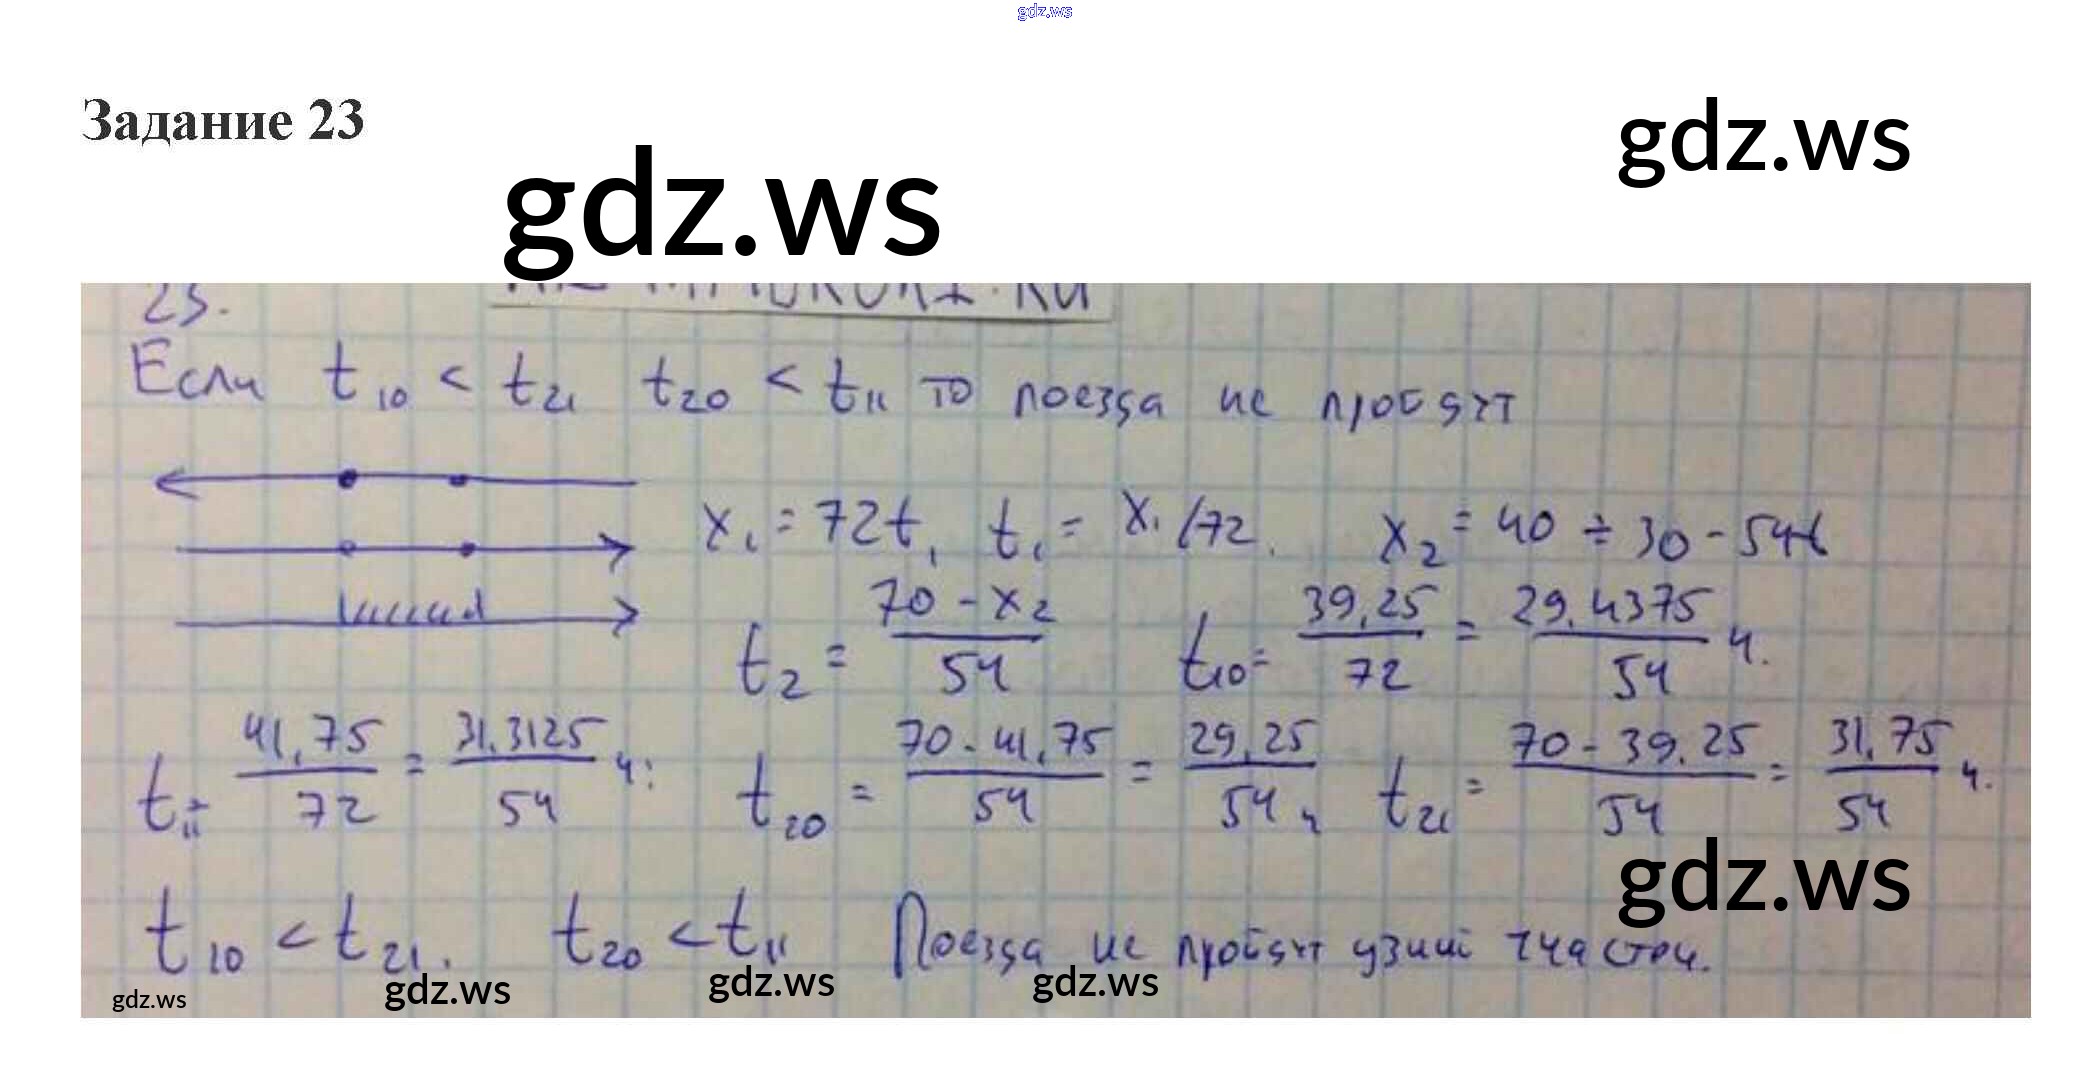 gdz.ws
Задание 23
gdz.ws
gdz.ws
23.
Если t₁₀ < t₂₁ t₂₀ < t₁₁ то поезда не пройдут
x₁ = 72t, t₁ = x₁/72. x₂ = 40 + 30 - 54t
t₂ = (70 - x₂)/54 t₁₀ = 39,25/72 = 29,4375/54 ч.
t₁₁ = 41,75/72 = 31,3125/54 ч; t₂₀ = (70 - 41,75)/54 = 29,25/54 ч t₂₁ = (70 - 39,25)/54 = 31,75/54 ч.
gdz.ws
t₁₀ < t₂₁. t₂₀ < t₁₁ Поезда не пройдут узкий участок.
gdz.ws
gdz.ws
gdz.ws
gdz.ws